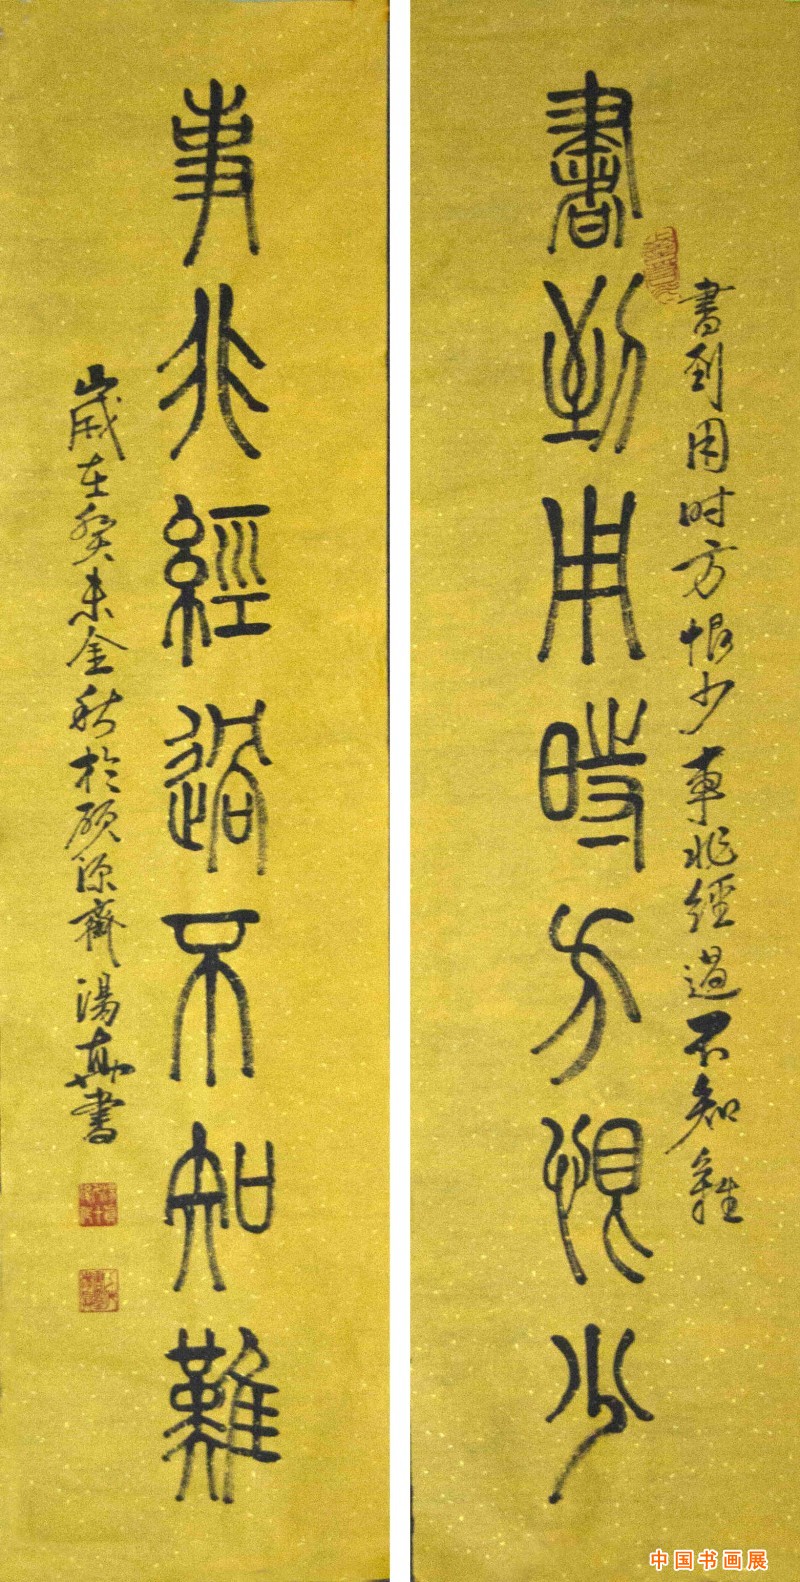 書到用時方恨少
書到用时方恨少事非經過不知難
事非經過不知難
歲在癸未金秋於源齋湯書
中国书画展